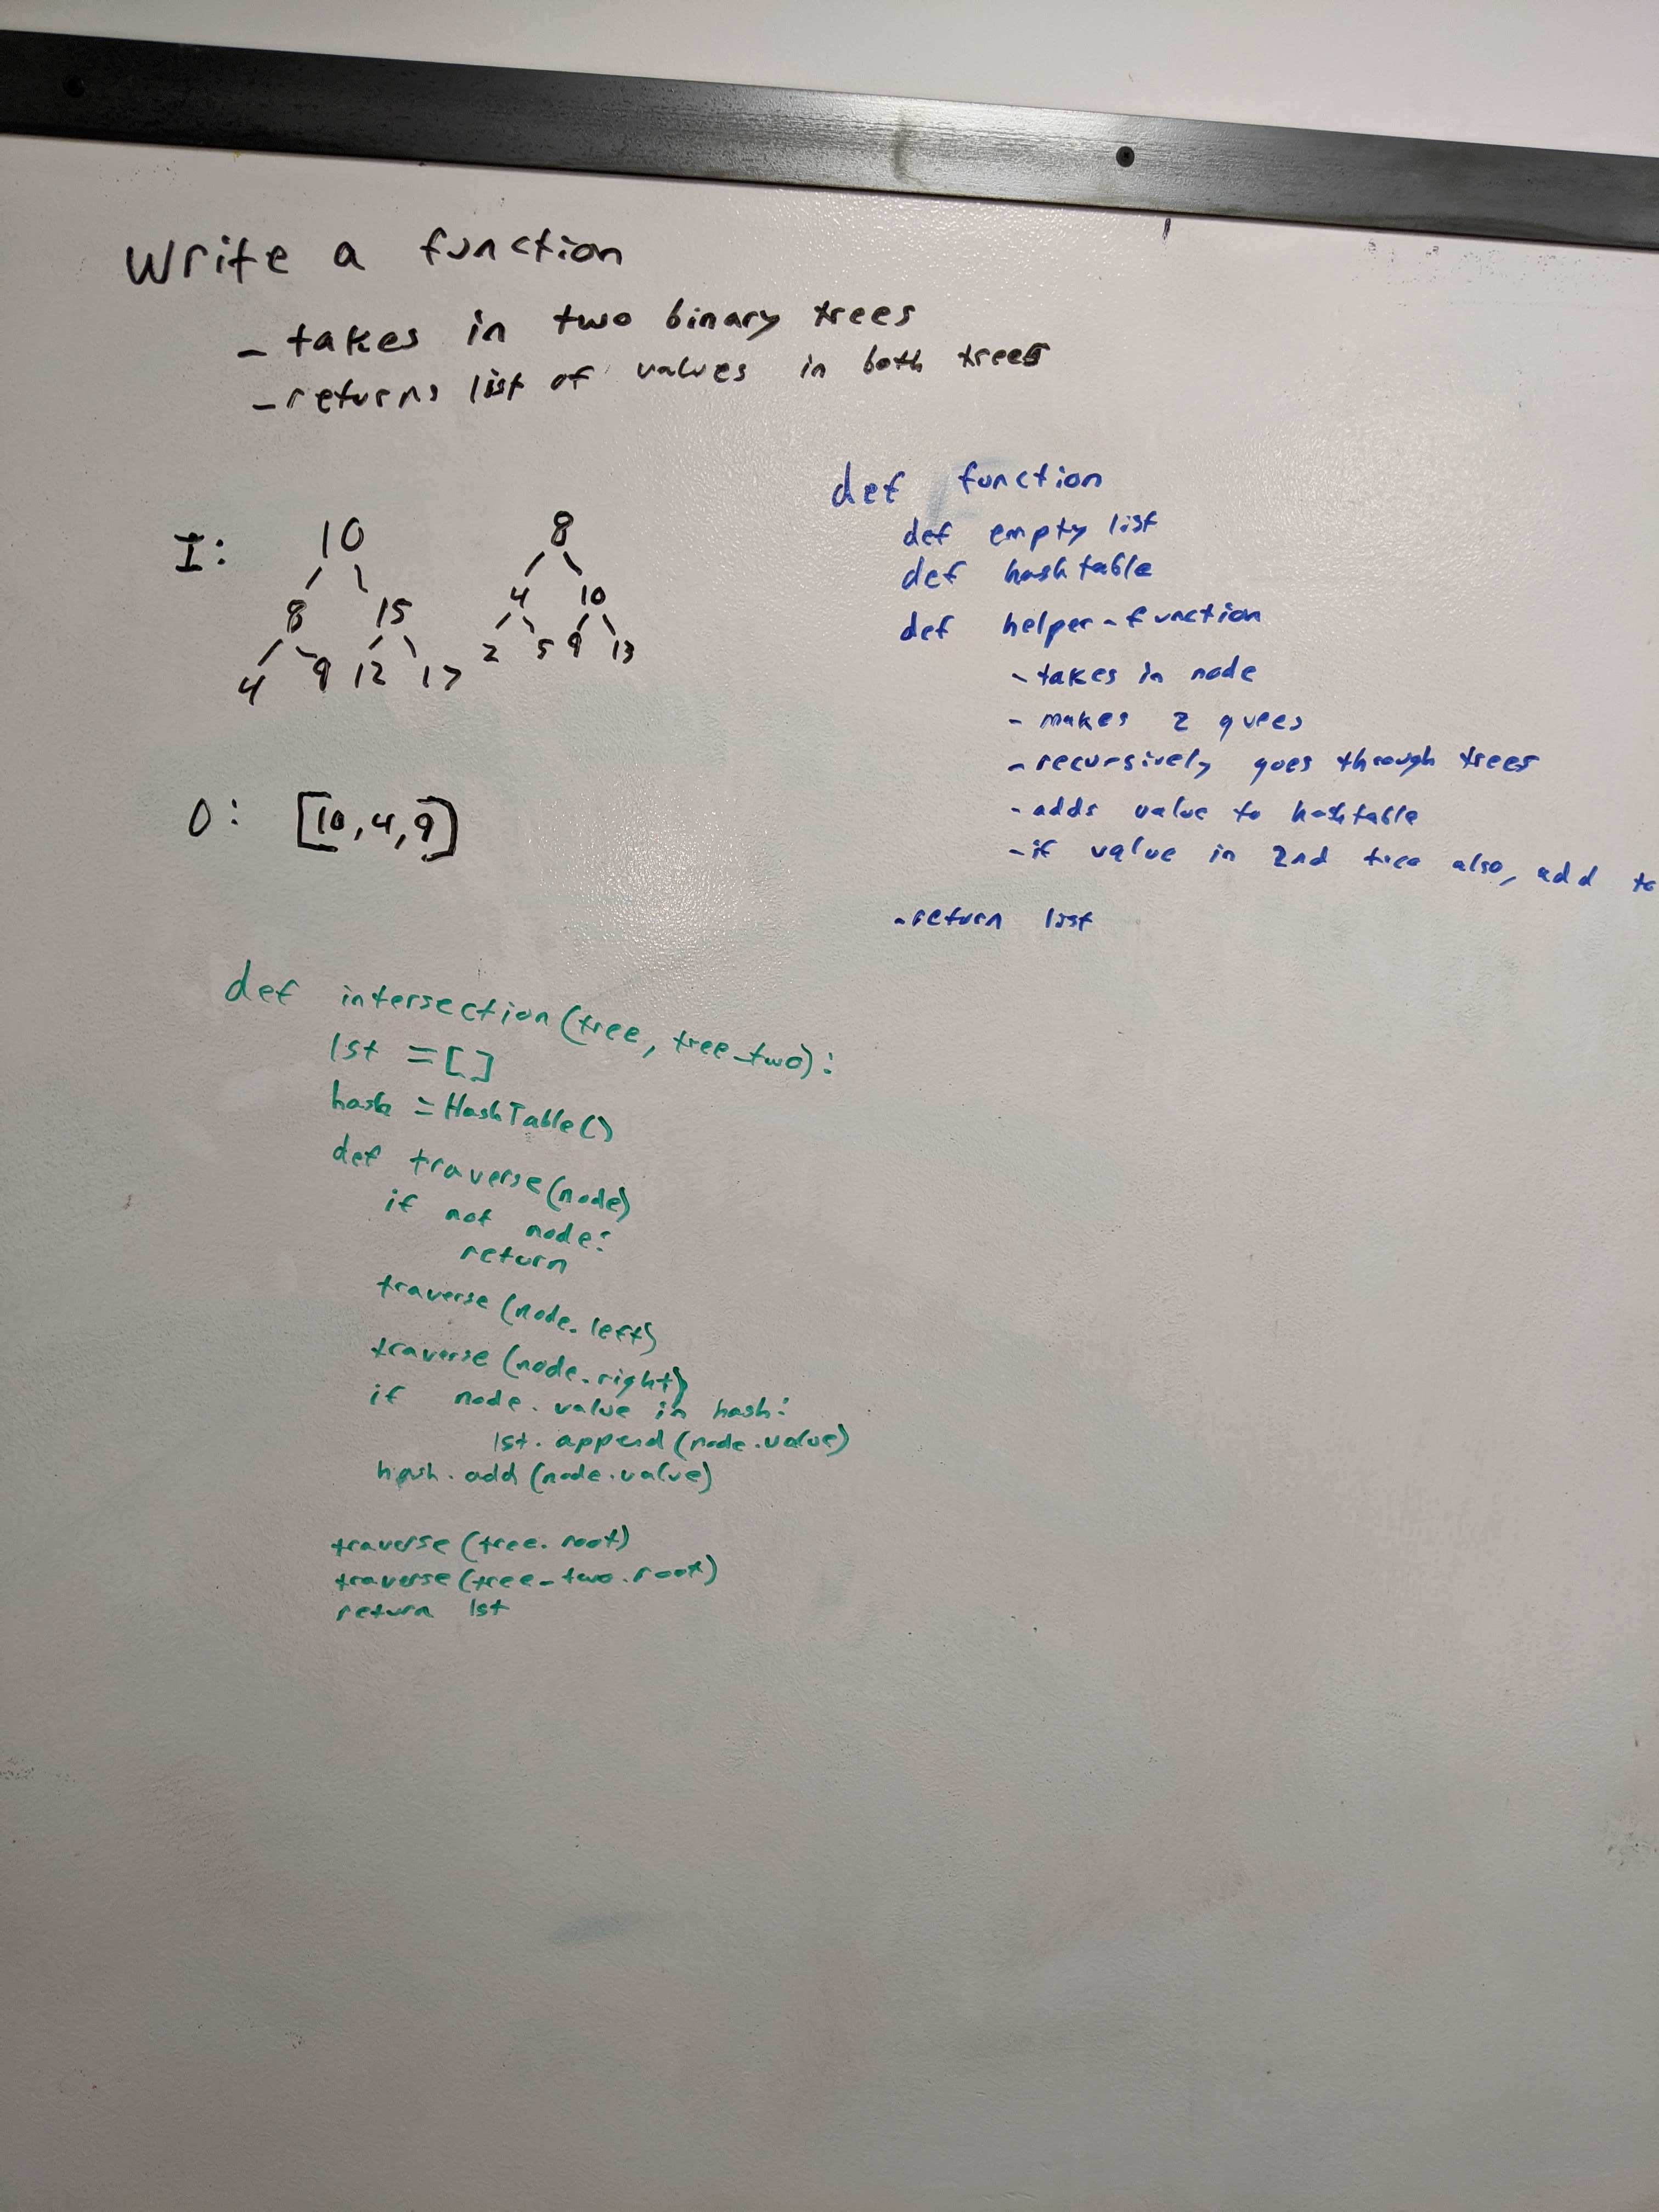 Write a function
- takes in two binary trees
- returns list of values in both trees
I:
10
8 15
4 9 12 17
8
4 10
2 5 9 13
O: [10,4,9]
def function
def empty list
def hashtable
def helper-function
- takes in node
- makes 2 quees
- recursively goes through trees
- adds value to hashtable
- if value in 2nd tree also, add to
- return list
def intersection(tree, tree_two):
lst = []
hash = HashTable()
def traverse(node)
if not node:
return
traverse(node.left)
traverse(node.right)
if node.value in hash:
lst.append(node.value)
hash.add(node.value)
traverse(tree.root)
traverse(tree_two.root)
return lst